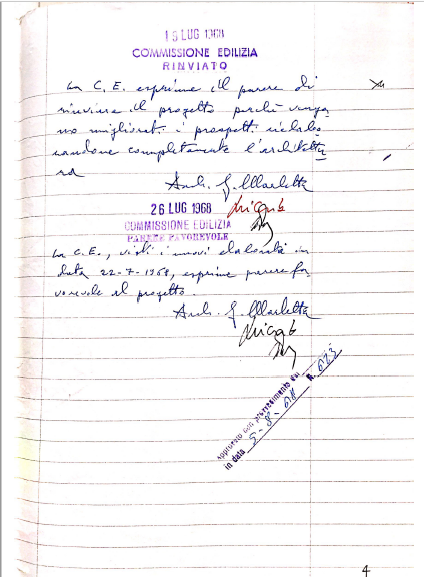 LUG 1968
COMMISSIONE EDILIZIA
RINVIATO
La C. E. esprime il parere di
rinviare il progetto perché venga
no migliorati i prospetti rielabo
randone completamente l'architettu
ra
Arch. G. Marletta
26 LUG 1968
COMMISSIONE EDILIZIA
PARERE FAVOREVOLE
La C.E., visti i nuovi elaborati in
data 22-7-1968, esprime parere fa
vorevole al progetto
Arch. G. Marletta
approvato con provvedimento del
in data 5-8-68 N. 623
4